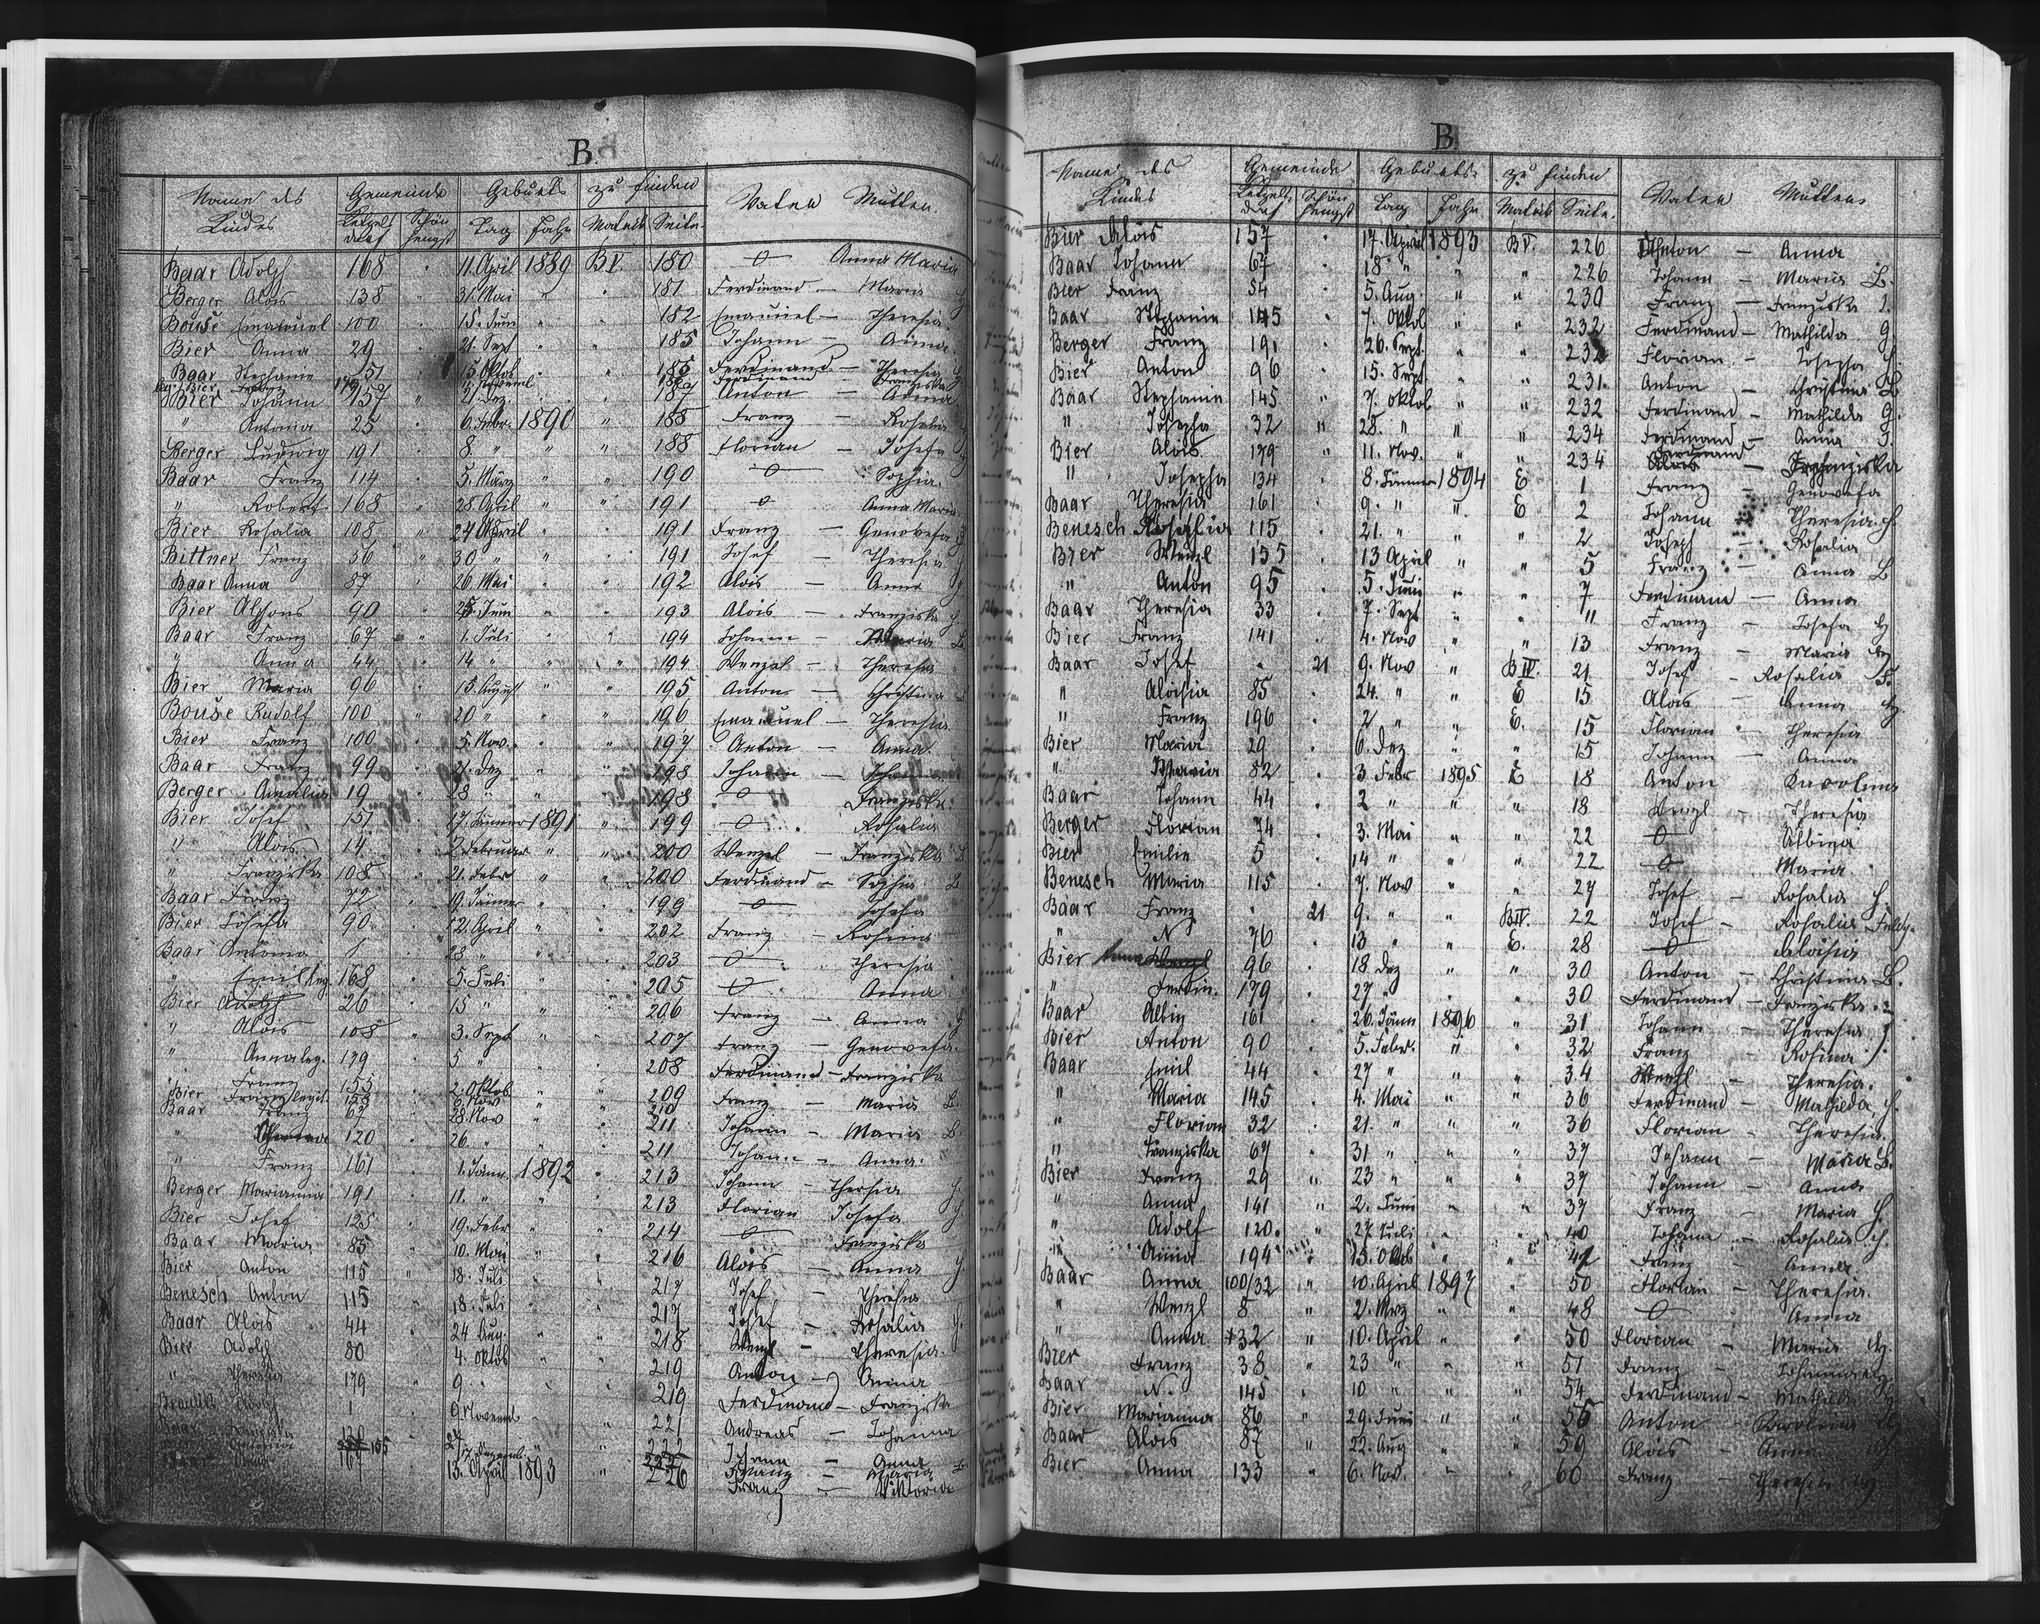 B.
Name des Kindes Gemeinde Geburts zu finden Vater Mutter.
Ketzelsdorf Schönhengst Tag Jahr Matrik Seite
Baar Adolf 168 " 11. April 1889 B V. 180 —o— Anna Maria
Berger Alois 138 " 31. Mai " " 181 Ferdinand — Maria
Bouše Emanuel 100 " 15. Juni " " 182 Emanuel — Theresia
Bier Anna 29 " 21. Sept " " 185 Johann — Anna
Baar Stephanie 151 15. Oktob " " 185 Ferdinand — Theresia
Bier Franz Novemb Ferdinand — Franziska
Bier Johann 157 " 21. Dez. " " 187 Anton — Anna
" Antonia 25 " 6. Febr. 1890 " 188 Franz — Rosalia
Berger Ludwig 191 " 8. " " " 188 Florian — Josefa
Baar Franz 114 " 5. März " " 190 —o— Sophia
" Robert 168 " 28. April " " 191 —o— Anna Maria
Bier Rosalia 108 " 24 April " " 191 Franz — Genovefa
Bittner Franz 56 " 30 " " " 191 Josef — Theresia
Baar Anna 87 " 26. Mai " " 192 Alois — Anna
Bier Alfons 90 " 25. Juni " " 193 Alois — Franziska
Baar Franz 67 " 1. Juli " " 194 Johann — Maria B
" Anna 44 " 14 " " " 194 Wenzel — Theresia
Bier Maria 96 " 15. August " " 195 Anton — Christina B
Bouše Rudolf 100 " 20 " " " 196 Emanuel — Theresia
Bier Franz 100 " 5. Nov. " " 197 Anton — Anna
Baar Franz 99 " 21. Dez " " 198 Johann —
Berger Amalia 19 " 28 " " " 198 —o— Franziska
Bier Josef 151 17. Jänner 1891 " 199 —o— Rosalia
" Alois 14 " 2. Februar " " 200 Wenzel — Franziska B
" Franziska 108 " 21. Febr " " 200 Ferdinand — Sophia B
Baar Franz 72 " 19. Jänner " " 199 —o— Josefa
Bier Josefa 90 " 12. April " " 202 Franz — Rosina
Baar Antonia 1 " 28 " " " 203 —o— Theresia
" Emil leg. 168 " 5. Juli " " 205 —o— Anna
Bier Adolf 26 " 15 " " " 206 Franz — Anna
" Alois 108 " 3. Sept " " 207 Franz — Genovefa
" Anna leg. 179 " 5 " " 208 Ferdinand — Franziska
" Franz 155 2. Oktob " " 209 Franz — Maria B
Bier Franz legit. Nov 210
Baar Franz 67 28. Nov " " 211 Johann — Maria B
" 120 " 26. " " " 211 Johann — Anna
" Franz 161 1. Jänn. 1892 " 213 Johann — Thersia
Berger Marianna 191 " 11. " " " 213 Florian Josefa
Bier Josef 125 " 19. Febr " " 214 —o— Franziska
Baar Maria 85 " 10. Mai " " 216 Alois — Anna
Bier Anton 115 " 18. Juli " " 217 Josef — Theresia
Benesch Anton 115 " 18. Juli " " 217 Josef — Rosalia
Baar Alois 44 " 24 Aug. " " 218 Wenzl — Theresia
Bier Adolf 80 4. Oktob " " 219 Anton — Anna
" Theresia 179 9. " " 219 Ferdinand — Franziska
Adolf 1 9. Novemb 221 Andreas — Johanna
Baar Johann — Anna
165 17. Dezemb Franz — Maria B
13. April 1893 " 226 Franz — Viktoria
B
Name des Kindes Gemeinde Geburts- zu finden Vater Mutter
Ketzelsdorf Schönhengst Tag Jahr Matrik Seite.
Bier Alois 157 " 17. April 1893 B V. 226 Anton — Anna
Baar Johann 67 " 18 " " " 226 Johann — Maria B.
Bier Franz 54 " 5. Aug. " " 230 Franz — Franziska
Baar Stephanie 145 " 7. Oktob " " 232 Ferdinand — Mathilda G
Berger Franz 191 " 26. Sept " " 232 Florian — Josepha
Bier Anton 96 " 15. Sept " " 231. Anton — Christina B
Baar Stephanie 145 " 7. Oktob " " 232 Ferdinand — Mathilda G.
" Josepha 32 " 28. " " " 234 Ferdinand — Anna
Bier Alois 179 " 11. Nov. " " 234 Ferdinand — Franziska
" Josepha 134 " 8. Jänner 1894 E 1 Franz — Genovefa
Baar Theresia 161 " 9. " " E 2 Johann — Theresia
Benesch Rosalia 115 " 21. " " " 2 Joseph — Rosalia
Bier Wenzl 155 " 13 April " " 5 Franz — Anna B
" Anton 95 " 5. Juni " " 7 Ferdinand — Anna
Baar Theresia 33 " 7. Sept " " 11 Franz — Josefa
Bier Franz 141 " 4. Nov " " 13 Franz — Maria
Baar Josef " 21 9. Nov " B IV. 21 Josef — Rosalia F.
" Aloisia 85 " 24. " " E 15 Alois — Anna
" Franz 196 " 2 " " E. 15 Florian — Theresia
Bier Maria 29 " 6. Dez " " 15 Johann — Anna
" Maria 82 " 3. Febr 1895 E 18 Anton Karolina
Baar Johann 44 " 2 " " " 18 Wenzl — Theresia
Berger Florian 74 " 3. Mai " " 22 —o— Albina
Bier Emilie 5 " 14 " " " 22 —o— Maria
Benesch Maria 115 " 7. Nov " " 27 Josef — Rosalia
Baar Franz " 21 9. " " B IV. 22 Josef — Rosalia
" N 76 " 13 " " E. 28 —o— Aloisia
Bier Anna Wenzl 96 " 18 Dez " " 30 Anton — Christina B.
" Ferdin. 179 " 27 " " " 30 Ferdinand — Franziska
Baar Albin 161 " 26. Jänn 1896 " 31 Johann — Theresia
Bier Anton 90 " 5. Febr. " " 32 Franz — Rosina
Baar Emil 44 " 27 " " " 34 Wenzl — Theresia.
" Maria 145 " 4. Mai " " 36 Ferdinand — Mathilda
" Florian 32 " 21. " " " 36 Florian — Theresia.
" Franziska 67 " 31 " " " 37 Johann — Maria B.
Bier Franz 29 " 23 " " " 37 Johann — Anna
" Anna 141 " 2. Juni " " 37 Franz — Maria
" Adolf 120. " 27. Juli " " 40 Johann — Rosalia
" Anna 194 " 15. Oktob " " 42 Franz — Anna
Baar Anna 100/32 " 10. April 1897 " 50 Florian — Theresia.
" Wenzl 8 " 2. März " " 48 —o— Anna
" Anna +32 " 10. April " " 50 Florian — Maria
Bier Franz 38 " 23 " " " 51 Franz — Johanna
Baar N. 145 " 10 " " " 54 Ferdinand — Mathilda
Bier Marianna 86 " 29. Juni " " 56 Anton — Karolina
Baar Alois 87 " 22. Aug " " 59 Alois — Anna
Bier Anna 133 " 6. Nov. " " 60 Franz — Theresia